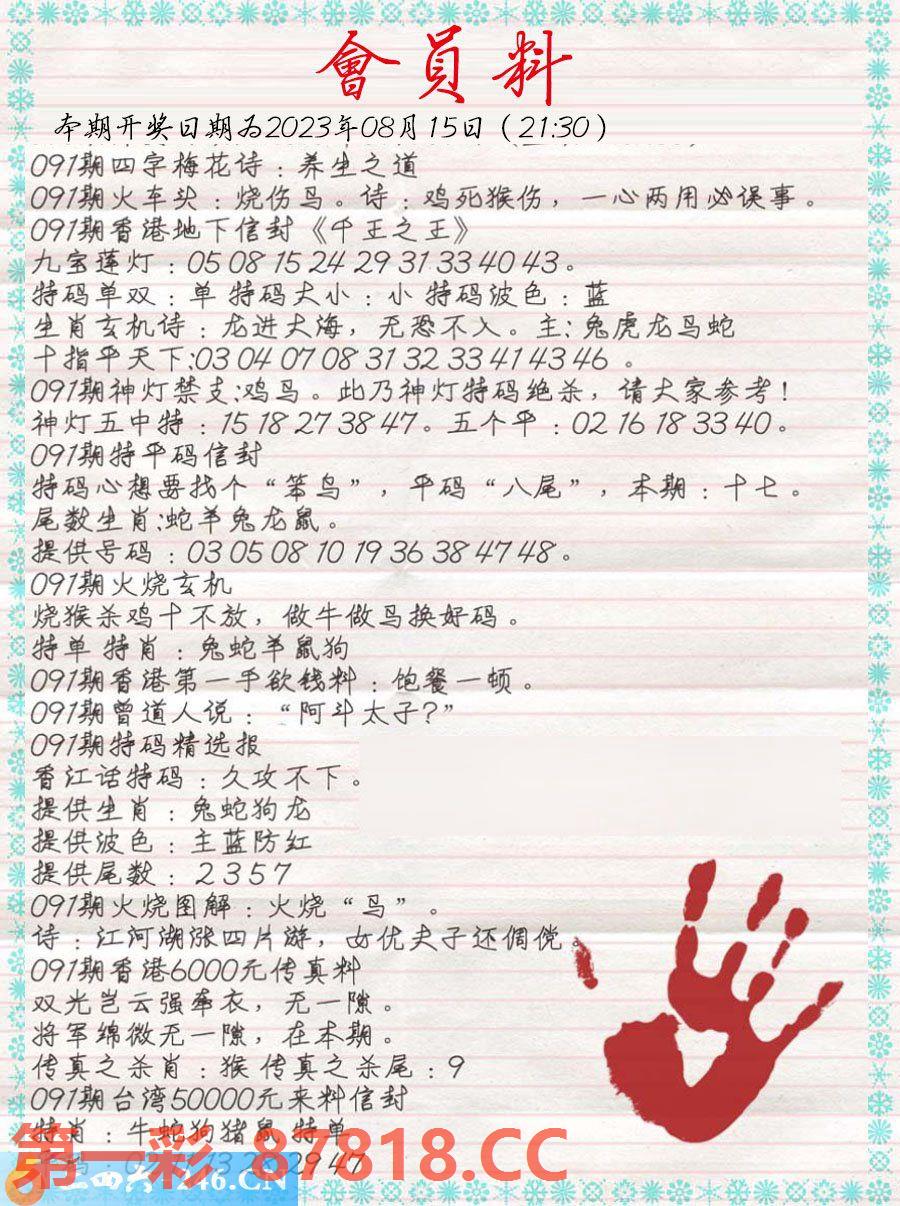 會員料
本期开奖日期为2023年08月15日（21:30）
091期四字梅花诗：养生之道
091期火车头：烧伤鸟。诗：鸡死猴伤，一心两用必误事。
091期香港地下信封《千王之王》
九宝莲灯：05 08 15 24 29 31 33 40 43。
特码单双：单 特码大小：小 特码波色：蓝
生肖玄机诗：龙进大海，无恐不入。主:兔虎龙马蛇
十指平天下:03 04 07 08 31 32 33 41 43 46 。
091期神灯禁支:鸡鸟。此乃神灯特码绝杀，请大家参考！
神灯五中特：15 18 27 38 47。五个平：02 16 18 33 40。
091期特平码信封
特码心想要找个“笨鸟”，平码“八尾”，本期：十七。
尾数生肖:蛇羊兔龙鼠。
提供号码：03 05 08 10 19 36 38 47 48。
091期火烧玄机
烧猴杀鸡十不放，做牛做鸟换好码。
特单 特肖：兔蛇羊鼠狗
091期香港第一手欲钱料：饱餐一顿。
091期曾道人说：“阿斗太子?”
091期特码精选报
香江话特码：久攻不下。
提供生肖：兔蛇狗龙
提供波色：主蓝防红
提供尾数：2 3 5 7
091期火烧图解：火烧“鸟”。
诗：江河湖涨四片游，女优夫子还倜傥。
091期香港6000元传真料
双光岂云强牵衣，无一隙。
将军绵微无一隙，在本期。
传真之杀肖：猴 传真之杀尾：9
091期台湾50000元来料信封
特肖：牛蛇狗猪鼠 特单
29 47
第一彩 87818.CC
二四六 246.CN